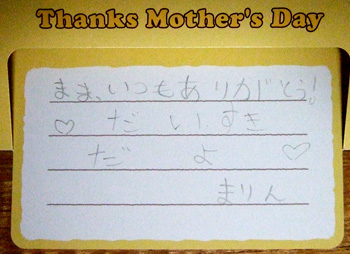 Thanks Mother's Day
まま、いつもありがとう!
♡ だいすき
だよ ♡
まりん